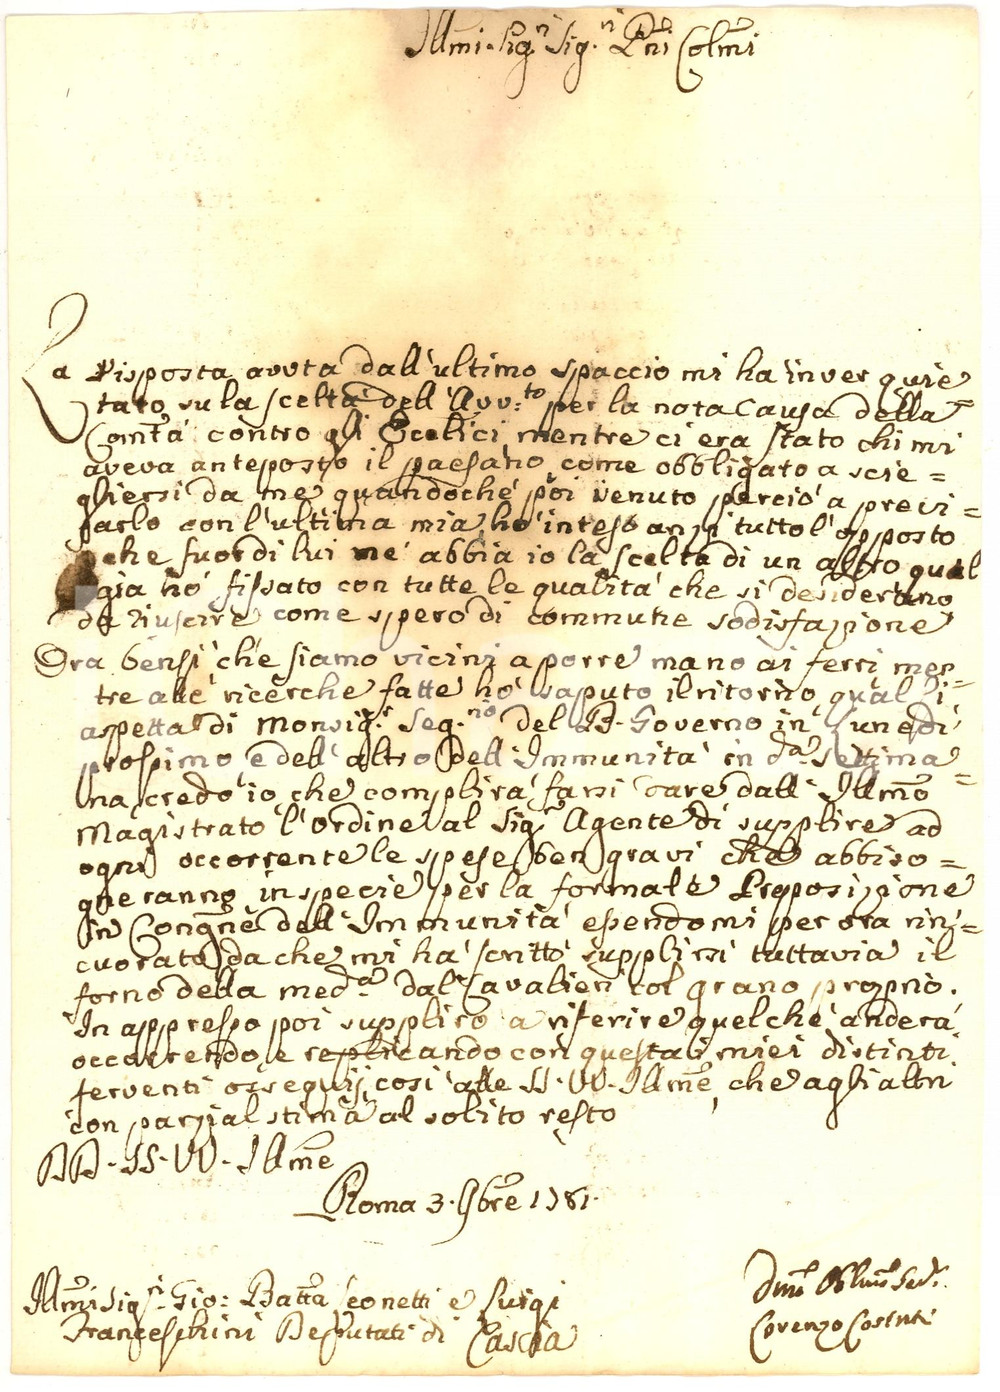 Illmi Sigri Sig.ri Pri Colmi
La Risposta avuta dall'ultimo spaccio mi ha inver quie
tato su la scelta dell'Avv:to per la nota Causa della
Comtà contro gli Ecclici mentre ci era stato chi mi
aveva anteposto il paesano come obbligato a scie=
gliersi da me quandoché poi venuto perciò a preci=
parlo con l'ultima mia hò inteso anzi tutto l'opposto
che fuor di lui né abbia io la scelta di un altro qual
già hò fissato con tutte le qualità che si desiderano
da riuscire come spero di commune sodisfazione
Ora bensì che siamo vicini a porre mano ai ferri men=
tre alle ricerche fatte hò saputo il ritorno qual si
aspetta di Monsig.r Seg.rio del B. Governo in Lunedì
prossimo e dell'altro dell'Immunità in da Settima=
na credo io che complirà farsi dare dall'Illmo
Magistrato l'ordine al Sigr Agente di supplire ad
ogni occorrente le spese ben gravi che abbiso=
gneranno in specie per la formale Proposizione
in Congne dell'Immunità essendomi per ora rin=
cuorato da che mi hà scritto supplirsi tuttavia il
forno della meda dal Cavalieri col grano proprio.
In appresso poi supplirò a riferire quel che anderà
occorrendo e replicando con questa i miei distinti
ferventi ossequij così alle SS. VV. Illme, che agli altri
con parzial stima al solito resto
DD. SS. VV. Illme
Roma 3. 9bre 1781.
Illmi Sigri Gio: Batta Leonetti e Luigi
Franceschini Deputati di Cascia
Dmo Oblmo Serv.
Lorenzo Cosinti